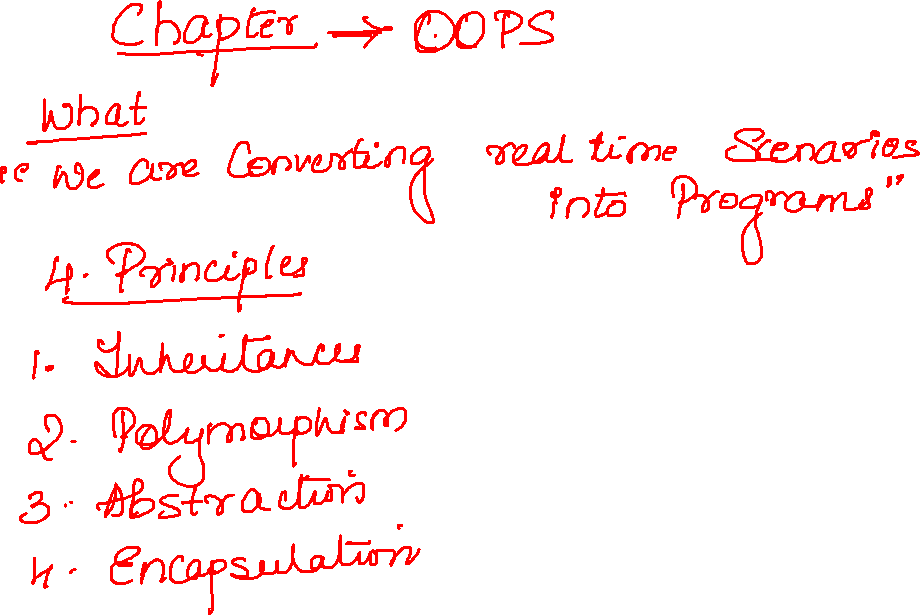 Chapter → OOPS
What
"We are Converting real time Scenarios
into Programs"
4. Principles
1. Inheritances
2. Polymorphism
3. Abstraction
4. Encapsulation